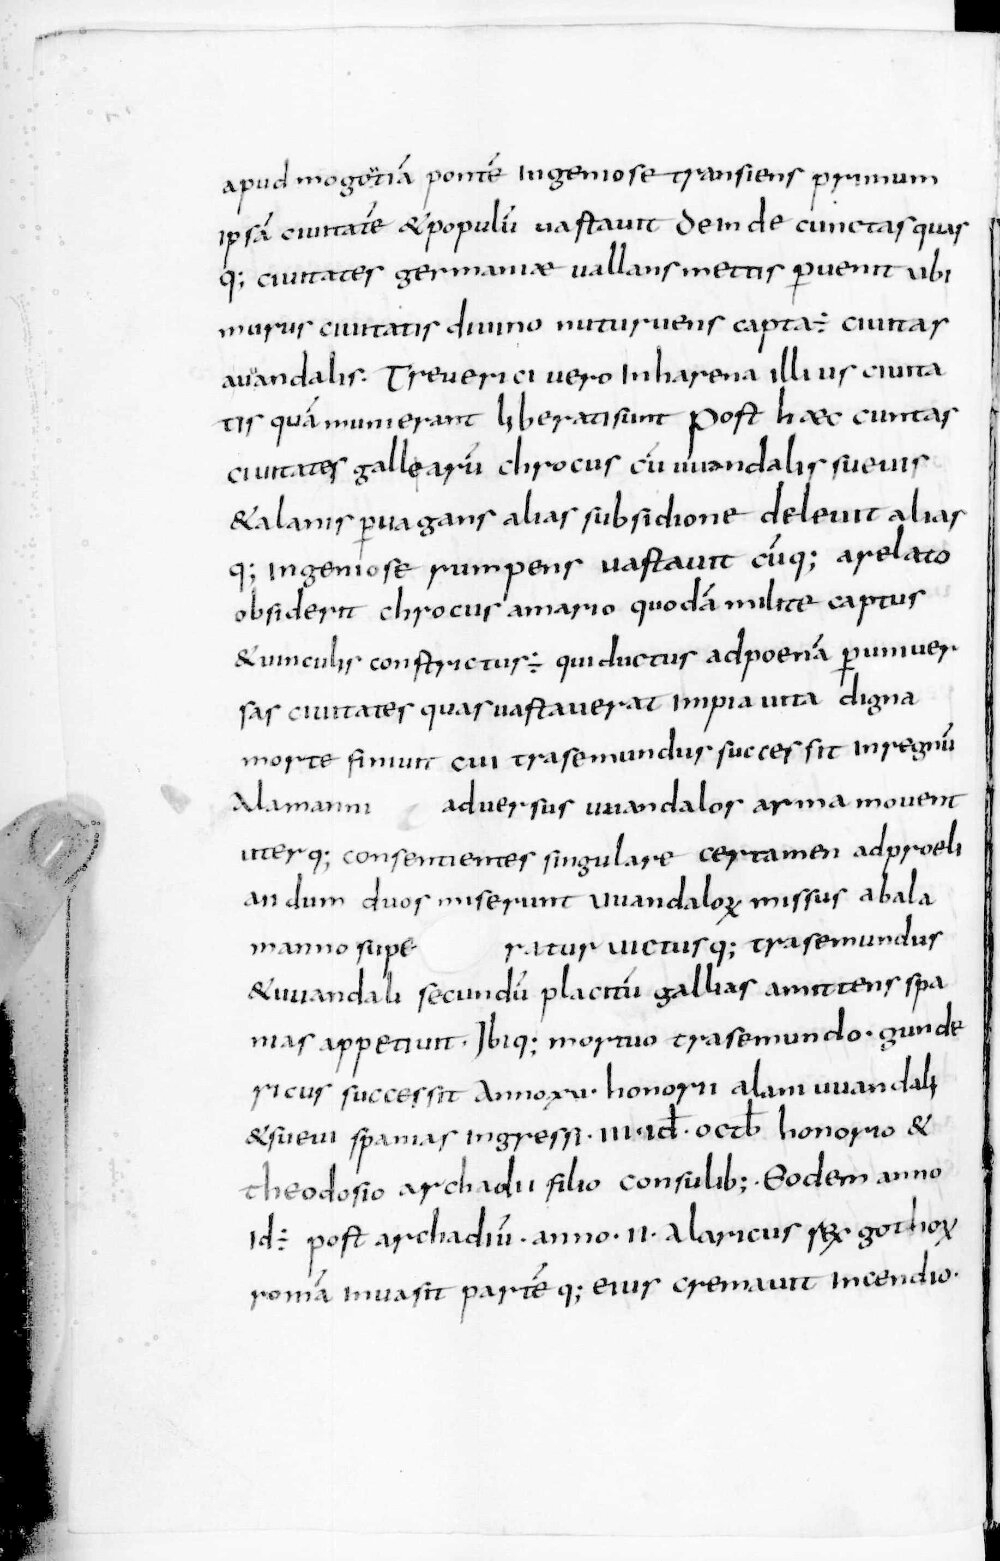 apud mogotiā pontē ingeniose transiens primum
ipsā ciuitatē &populū uastauit deinde cunctas quas
q; ciuitates germaniæ uallans mettis ꝑuenit ubi
murus ciuitatis diuino nuturuens capta÷ ciuitas
auuandalis. Treuerici uero inharena illius ciuita
tis quā munierant liberatisunt Post hæc cuntas
ciuitates gallearū chrocus cū uuandalis sueuis
&alanis ꝑuagans alias subsidione deleuit alias
q; ingeniose rumpens uastauit cūq; arelato
obsiderit chrocus amario quodā milite captus
&uinculis constrictus÷ qui ductus adpoenā ꝑuniuer
sas ciuitates quas uastauerat impia uita digna
morte finiuit cui trasemundus successit inregnū
Alamanni aduersus uuandalos arma mouent
uterq; consentientes singulare certamen adproeli
andum duos miserunt uuandaloꝝ missus abala
manno supe ratur uictusq; trasemundus
&uuandali secundū placitū gallias amittens spa
nias appetiuit. Ibiq; mortuo trasemundo. gunde
ricus successit Anno xu. honorii alani uuandali
&sueui spanias ingressi. iii. id̄. octb̄ honorio &
theodosio archadii filio consulib;. Eodem anno
id÷ post archadiū. anno. ii. alaricus rex gothoꝝ
romā inuasit partēq; eius cremauit incendio.